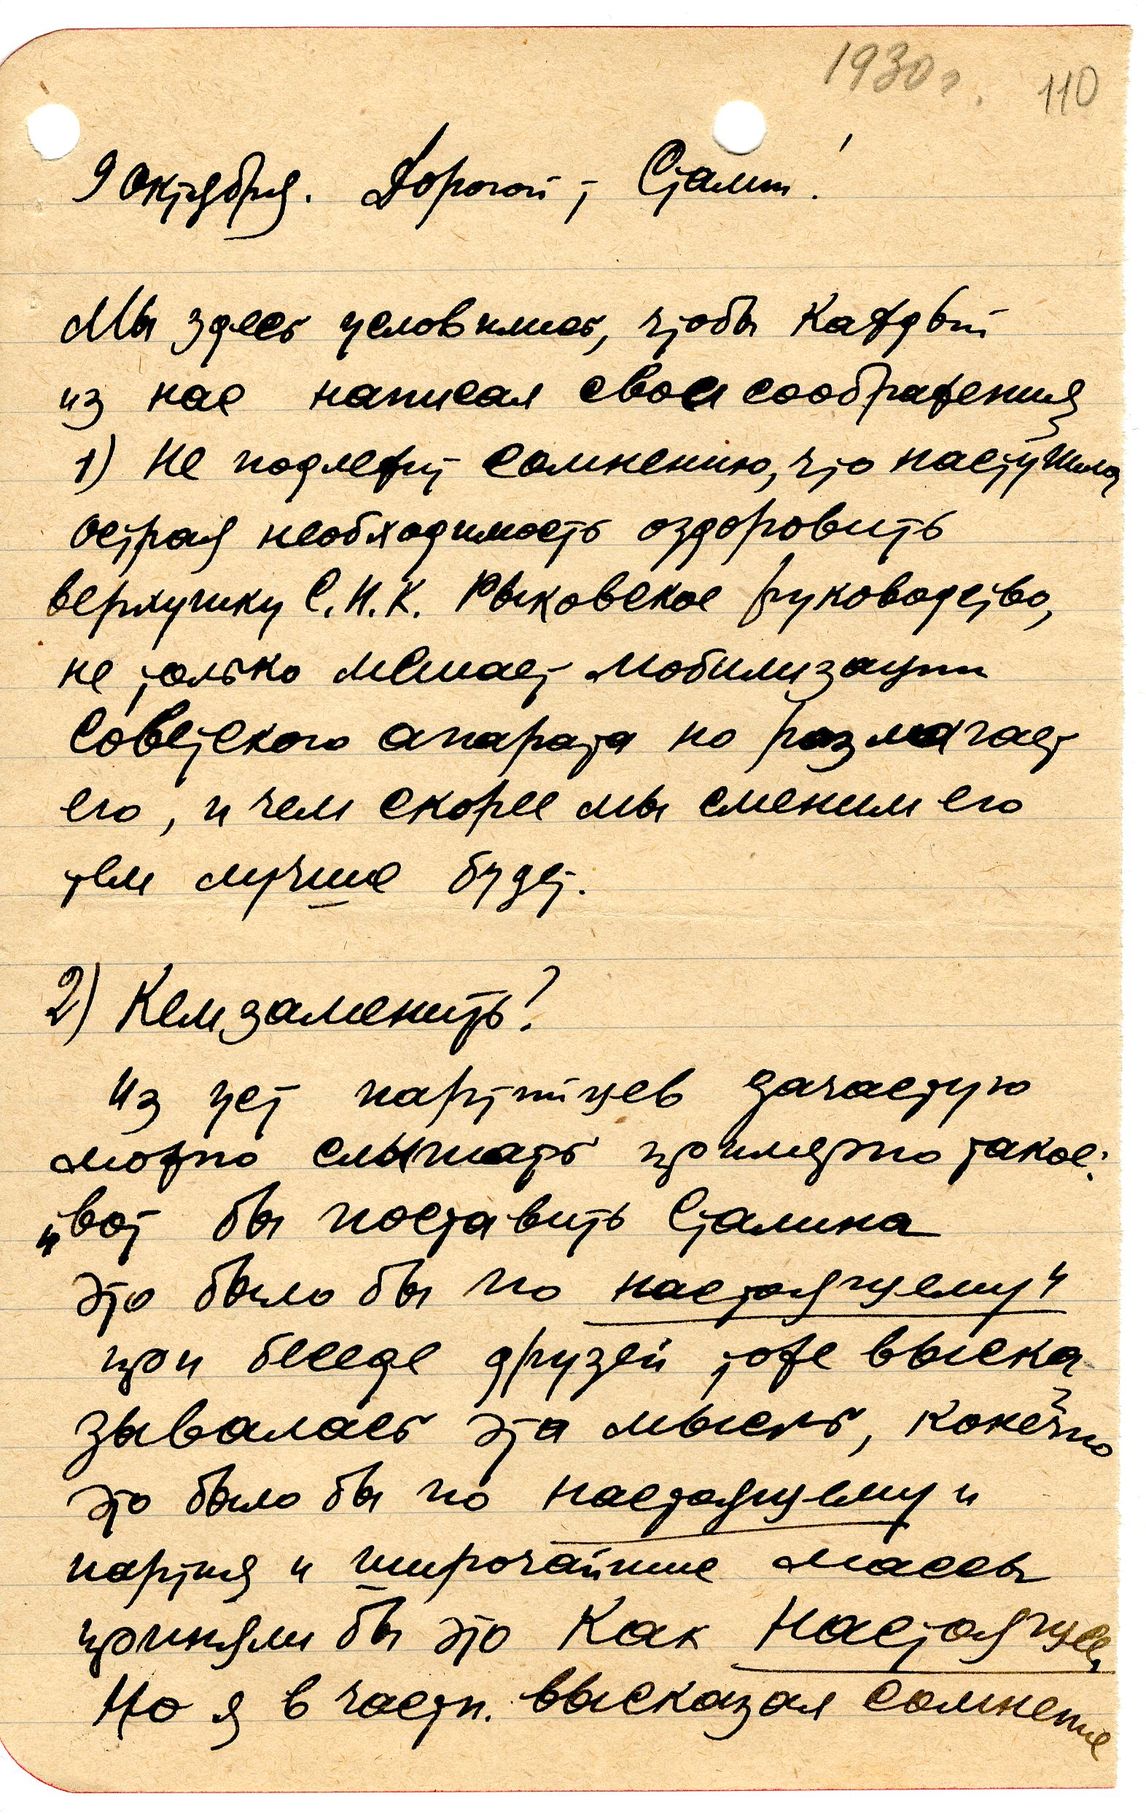 1930 г. 110
9 Октября. Дорогой т Сталин!
Мы здесь условились, чтобы каждый
из нас написал свои соображения
1) Не подлежит сомнению, что наступила
острая необходимость оздоровить
верхушку С.Н.К. Рыковское руководство,
не только мешает мобилизации
Советского апарата но размагает
его, и чем скорее мы сменим его
тем лучше будет.
2) Кем заменить?
Из уст партийцев зачастую
можно слышать примерно такое:
„вот бы поставить Сталина
это было бы по настоящему"
при беседе друзей тоже выска
зывалась эта мысль, конечно
это было бы по настоящему и
партия и широчайшие массы
приняли бы это как настоящее,
Но я в частн. высказал сомнение